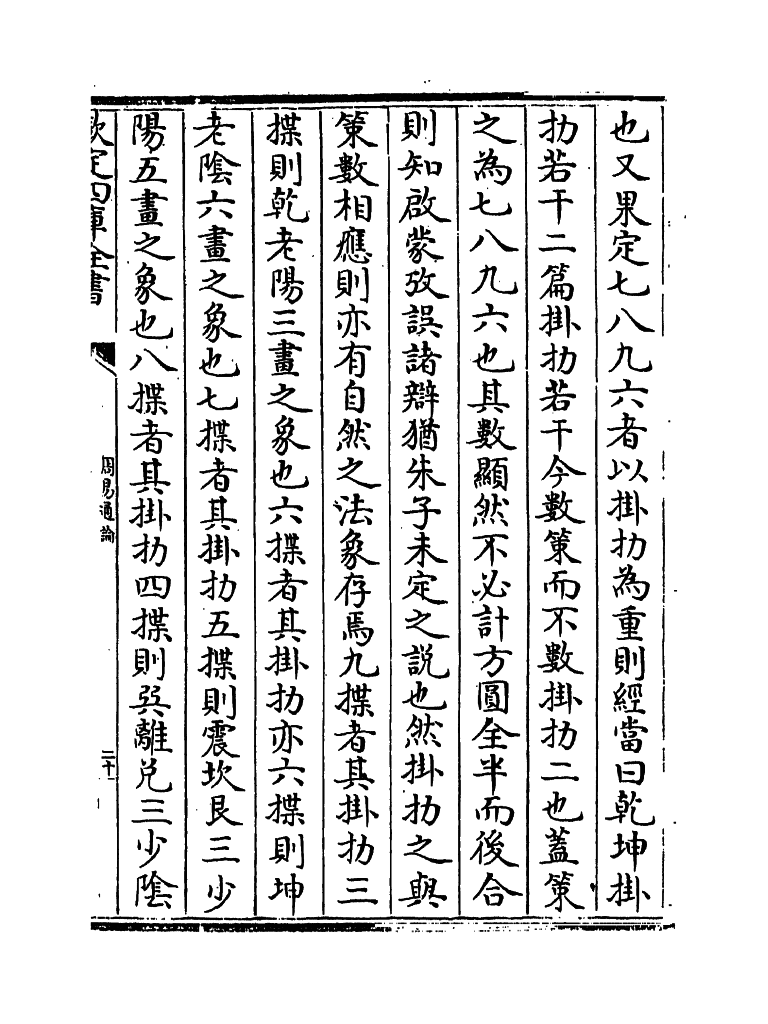 也又果定七八九六者以掛扐為重則經當曰乾坤掛
扐若干二篇掛扐若干今數策而不數掛扐二也蓋策
之為七八九六也其數顯然不必計方圓全半而後合
則知啟蒙攷誤諸辯猶朱子未定之說也然掛扐之與
策數相應則亦有自然之法象存焉九揲者其掛扐三
揲則乾老陽三畫之象也六揲者其掛扐亦六揲則坤
老陰六畫之象也七揲者其掛扐五揲則震坎艮三少
陽五畫之象也八揲者其掛扐四揲則巽離兌三少陰
欽定四庫全書
周易通論
二十一